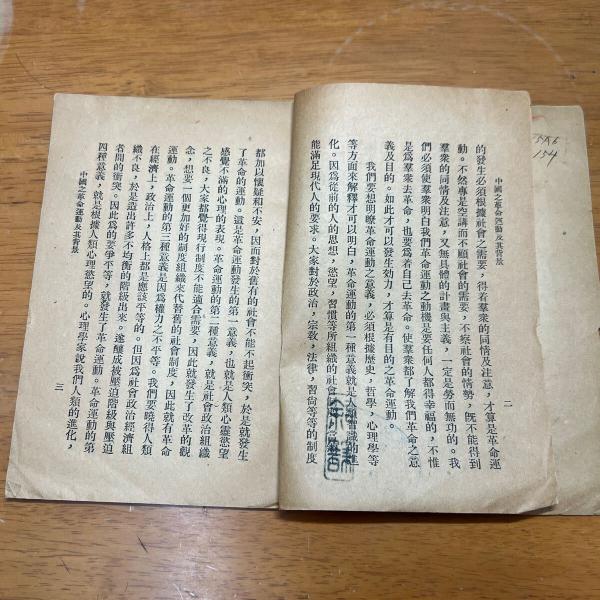 中國之革命運動及其背景
二
的發生必須根據社會之需要，得着羣衆的同情及注意，才算是革命運
動。不然專是空講而不顧社會的需要，不察社會的情勢，旣不能得到
羣衆的同情及注意，又無具體的計畫與主義，一定是勞而無功的。我
們必須使羣衆明白我們革命運動之動機是要任何人都得幸福的，不惟
是爲羣衆去革命，也要爲着自己去革命。使羣衆都了解我們革命之意
義及目的。如此才可以發生効力，才算是有目的之革命運動。
我們要想明瞭革命運動之意義，必須根據歷史，哲學，心理學等
等方面來解釋才可以明白，革命運動的第一種意義就是人類智識的進
化。因爲從前的人的思想，慾望，習慣等所組織的社會
能滿足現代人的要求。大家對於政治，宗敎，法律，習尙等等的制度
都加以懷疑和不安，因而對於舊有的社會不能不起衝突，於是就發生
了革命的運動。這是革命運動發生的第一意義，也就是人類心靈慾望
感覺不滿的心理的表現。革命運動的第二種意義，就是社會政治組織
之不良，大家都覺得現行制度不能適合需要，因此就發生了改革的觀
念，想要一個更加好的制度組織來代替舊的社會制度，因此就有革命
運動。革命運動的第三種意義是因爲權力之不平等。我們要曉得人類
在經濟上，政治上，人格上都是應該平等的。但因爲社會政治經濟組
織不良，於是造出許多不均衡的階級出來。遂釀成被壓迫階級與壓迫
者間的衝突。因此爲的要爭平等，就發生了革命運動。革命運動的第
四種意義，就是根據人類心理慾望的。心理學家說我們人類的進化，
中國之革命運動及其背景
三
154